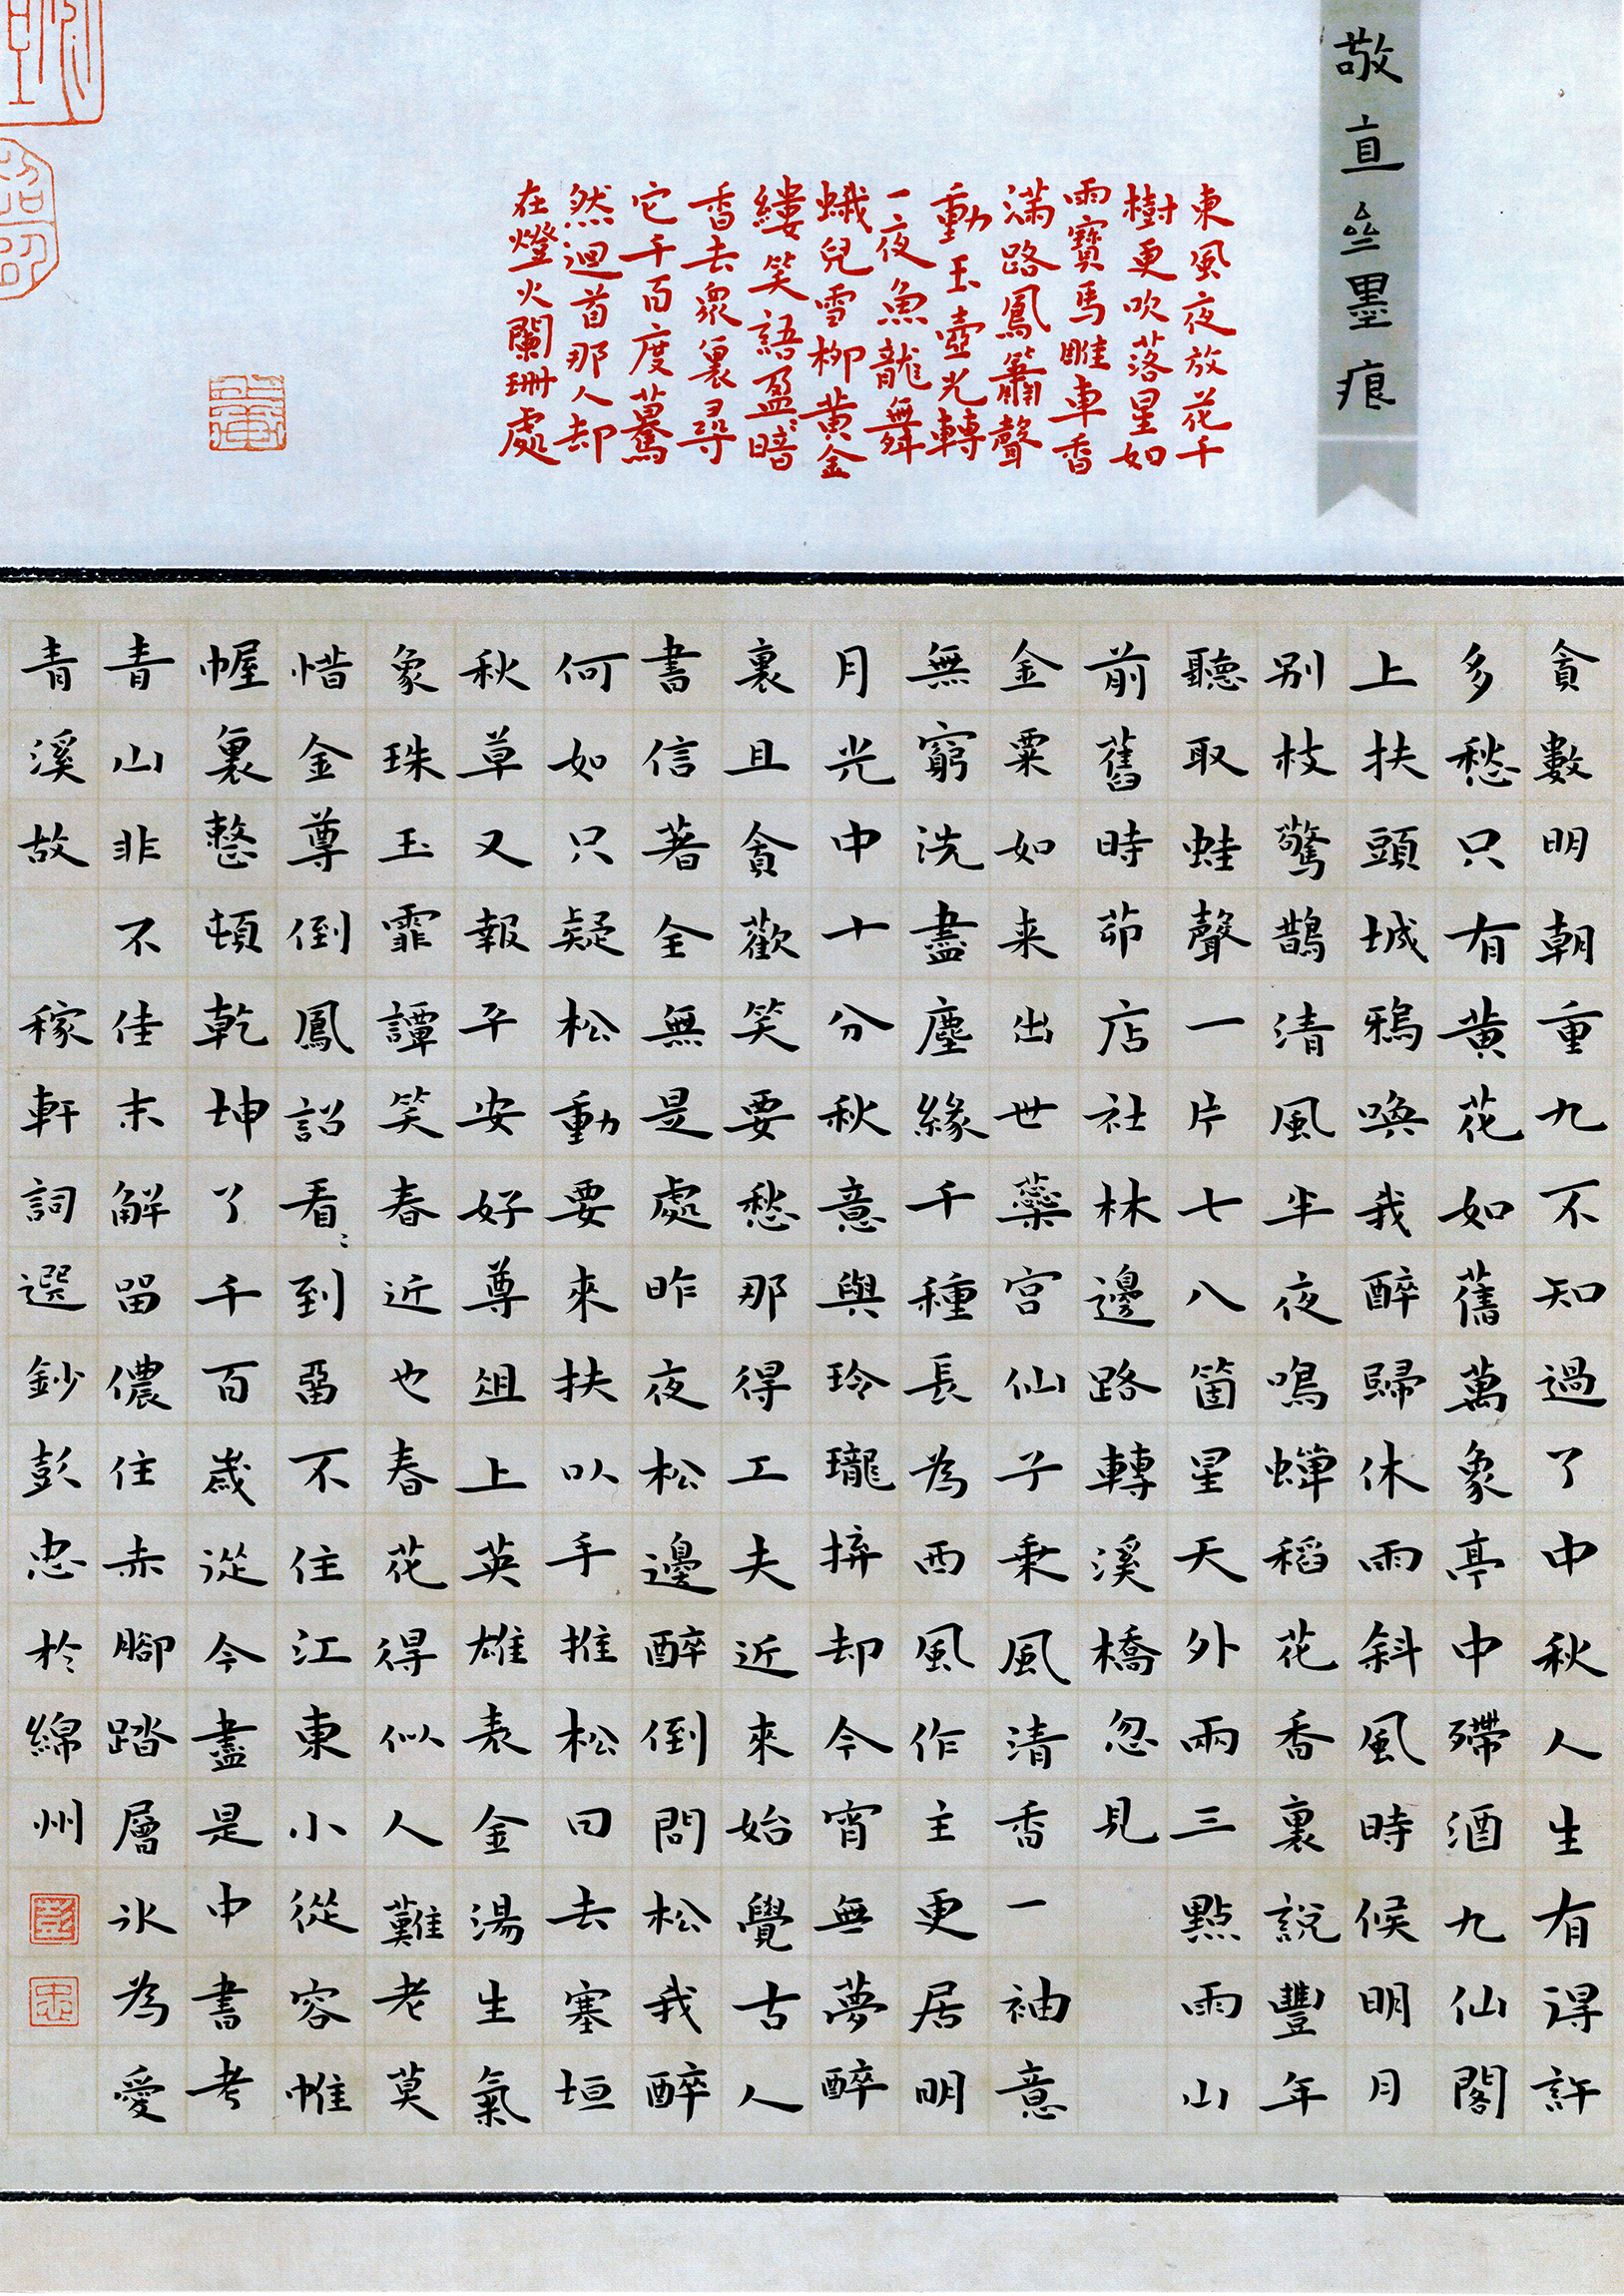 敬直亝墨痕
東風夜放花千
樹更吹落星如
雨寶馬雕車香
滿路鳳簫聲
動玉壺光轉
一夜魚龍舞
蛾兒雪柳黃金
縷笑語盈〻暗
香去眾裏尋
它千百度驀
然迴首那人却
在燈火闌珊處
貪數明朝重九不知過了中秋人生有得許
多愁只有黃花如舊萬象亭中殢酒九仙閣
上扶頭城鴉喚我醉歸休雨斜風時候明月
别枝驚鵲清風半夜鳴蟬稻花香裏說豐年
聽取蛙聲一片七八箇星天外兩三點雨山
前舊時茆店社林邊路轉溪橋忽見
金粟如来出世蘂宮仙子乘風清香一袖意
無窮洗盡塵緣千種長為西風作主更居明
月光中十分秋意與玲瓏拚却今宵無夢醉
裏且貪歡笑要愁那得工夫近來始覺古人
書信著全無是處昨夜松邊醉倒問松我醉
何如只疑松動要來扶以手推松曰去塞垣
秋草又報平安好尊俎上英雄表金湯生氣
象珠玉霏譚笑春近也春花得似人難老莫
惜金尊倒鳳詔看〻到畱不住江東小從容帷
幄裏整頓乾坤了千百歲從今盡是中書考
青山非不佳未解畱儂住赤腳踏層冰為愛
青溪故 稼軒詞選鈔彭忠於綿州
彭
忠